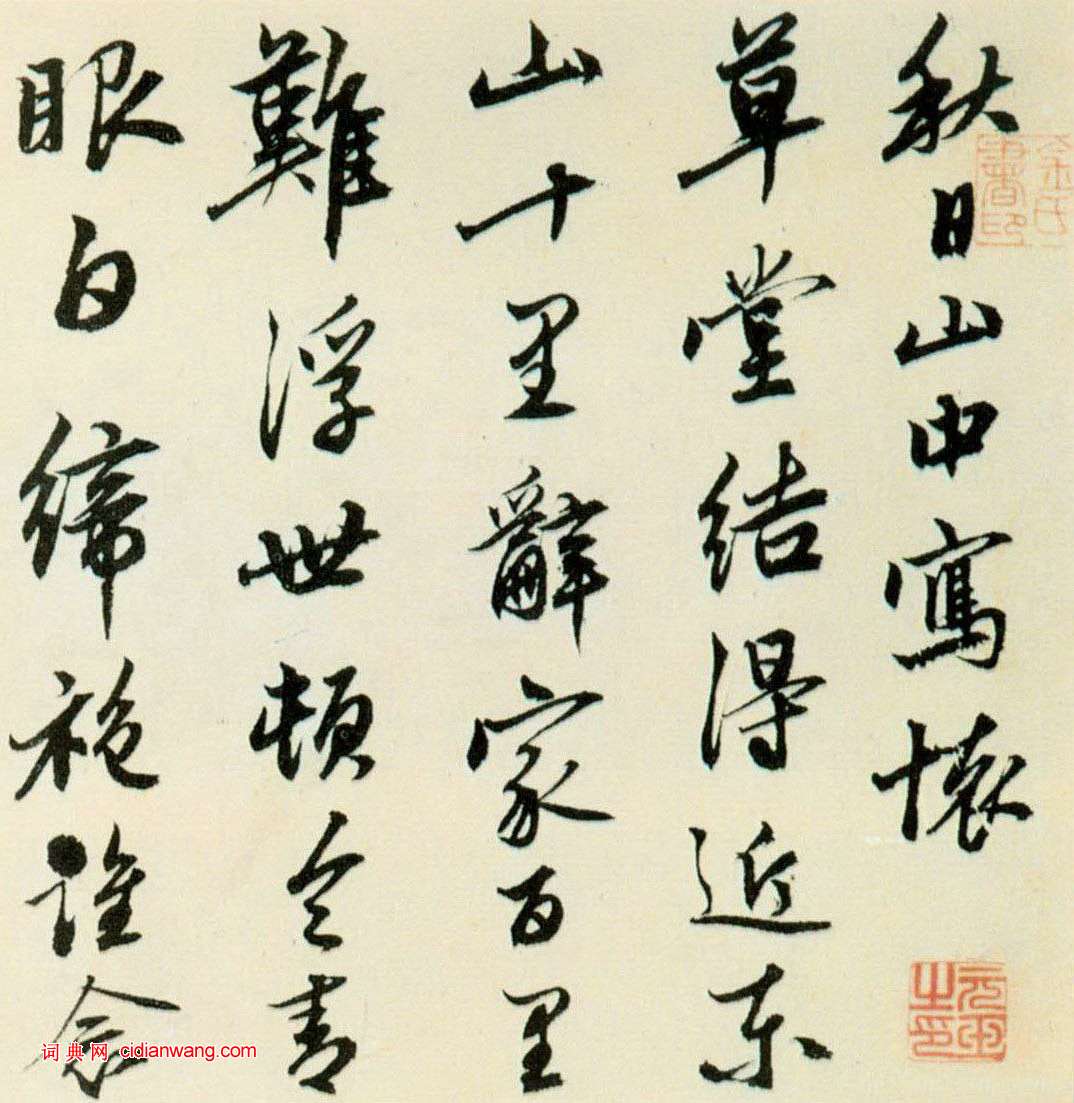 秋日山中寫懷
草堂結得近東
山十里辭家百里
難浮世頓令青
眼白綈袍誰念
余氏書印
词典网 cidianwang.com